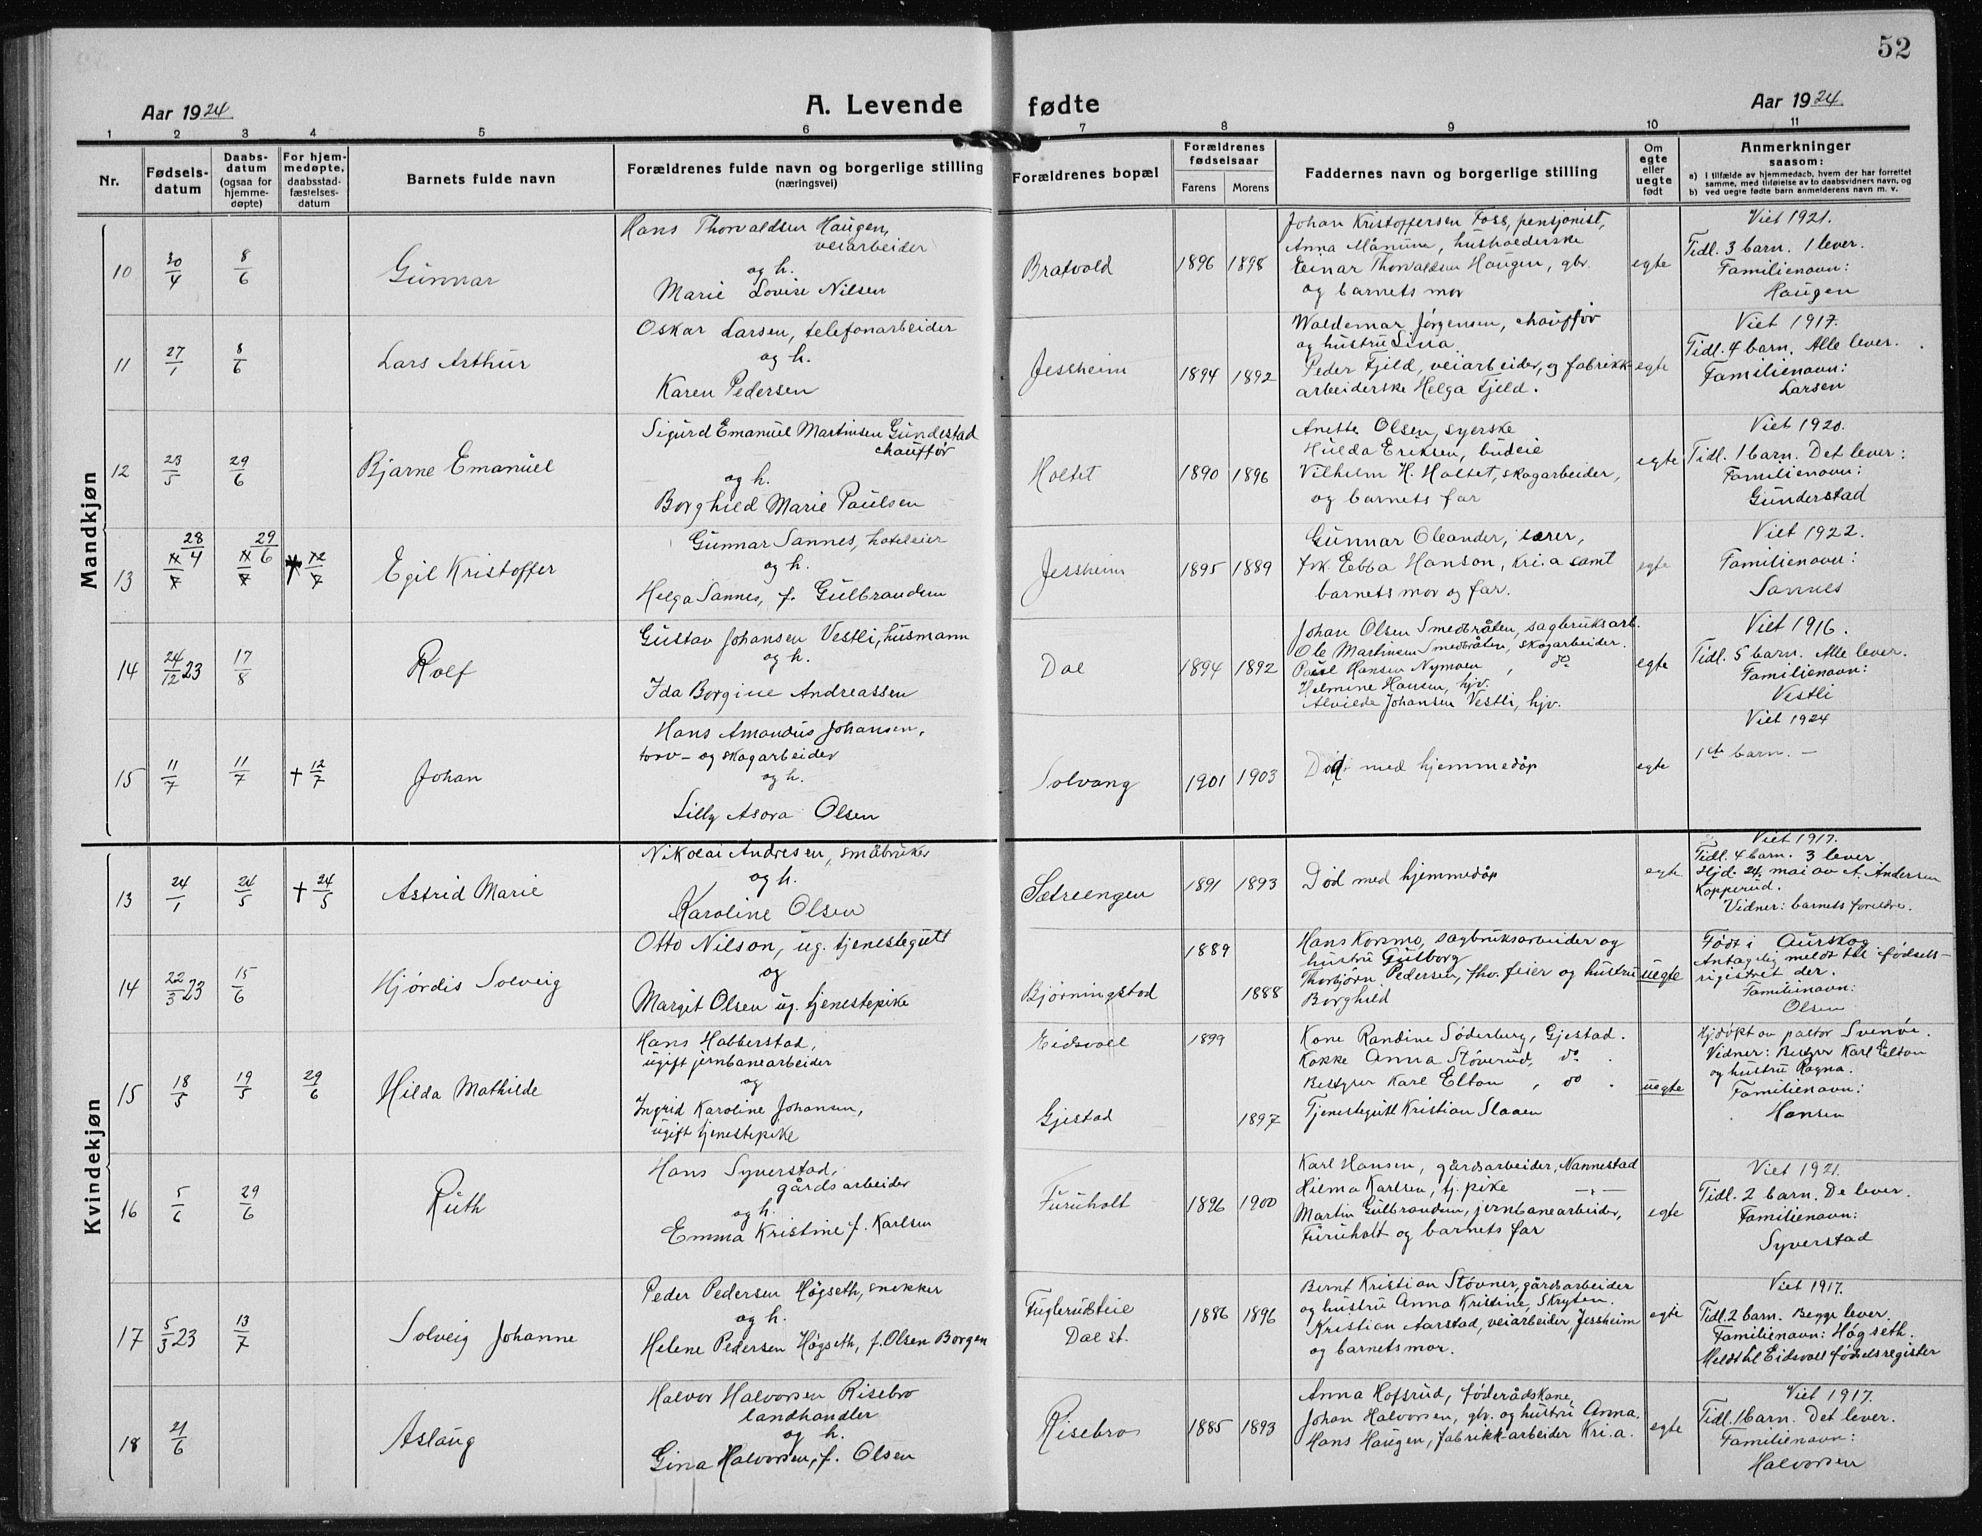 52
Aar 1924
A. Levende fødte
Aar 1924
1 2 3 4 5 6 7 8 9 10 11
Nr.
Fødsels-
datum
Daabs-
datum
(ogsaa for
hjemme-
døpte)
For hjem-
medøpte,
daabsstad-
fæstelses-
datum
Barnets fulde navn
Forældrenes fulde navn og borgerlige stilling
(næringsvei)
Forældrenes bopæl
Forældrenes
fødselsaar
Farens Morens
Faddernes navn og borgerlige stilling
Om
egte
eller
uegte
født
Anmerkninger
saasom:
a) I tilfælde av hjemmedaab, hvem der har forrettet
samme, med tilføielse av to daabsvidners navn, og
b) ved uegte fødte barn anmelderens navn m. v.
Mandkjøn
10
30/4
8/6
Gunnar
Hans Thorvaldsen Haugen,
veiarbeider
og h.
Marie Lovise Nilsen
Bratvold
1896 1898
Johan Kristoffersen Foss, pensjonist,
Anna Månum, husholderske
Einar Thorvaldsen Haugen, gbr.
og barnets mor
egte
Viet 1921.
Tidl. 3 barn. 1 lever.
Familienavn:
Haugen
11
27/1
8/6
Lars Arthur
Oskar Larsen, telefonarbeider
og h.
Karen Pedersen
Jessheim
1894 1892
Waldemar Jørgensen, chauffør
og hustru Lina.
Peder Fjeld, veiarbeider, og fabrikk-
arbeiderske Helga Fjeld.
egte
Viet 1917.
Tidl. 4 barn. Alle lever.
Familienavn:
Larsen
12
23/5
29/6
Bjarne Emanuel
Sigurd Emanuel Martinsen Gundestad
chauffør
og h.
Borghild Marie Paulsen
Holtet
1890 1896
Anette Olsen, syerske
Hulda Eriksen, budeie
Vilhelm H. Holtet, skogarbeider,
og barnets far
egte
Viet 1920.
Tidl. 1 barn. Det lever:
Familienavn:
Gunderstad
13
28/4
29/6
Egil Kristoffer
Gunnar Sannes, hoteleier
og h.
Helga Sannes, f. Gulbrandsen
Jessheim
1895 1889
Gunnar Oleander, lærer,
frk. Ebba Hanson, Kri.a samt
barnets mor og far.
egte
Viet 1922.
Familienavn:
Sannes
14
24/12 23
17/8
Rolf
Gustav Johansen Vestli, husmann
og h.
Ida Borgine Andreassen
Dal
1894 1892
Johan Olsen Smedbråten, sagbruksarb.
Ole Martinsen Smedbråten, skogarbeider.
Paul Hansen Nymoen, do
Helmine Hansen, hjv.
Alvilde Johansen Vestli, hjv.
egte
Viet 1916.
Tidl. 5 barn. Alle lever.
Familienavn:
Vestli
15
11/7
11/7
+ 12/7
Johan
Hans Amandus Johansen,
torv- og skogarbeider
og h.
Lilly Asora Olsen
Solvang
1901 1903
Død med hjemmedåp
egte
Viet 1924
1ste barn. —
Kvindekjøn
13
24/1
24/5
+ 24/5
Astrid Marie
Nikolai Andresen, småbruker
og h.
Karoline Olsen
Sætreengen
1891 1893
Død med hjemmedåp
egte
Viet 1917.
Tidl. 4 barn. 3 lever
Hjd. 24. mai av A. Andersen
Kopperud.
Vidner: barnets foreldre.
14
22/3 23
15/6
Hjørdis Solveig
Otto Nilson, ug. tjenestegutt
og
Margit Olsen ug. tjenestepike
Bjørningstad
1889
1888
Hans Korsmo, sagbruksarbeider og
hustru Gulborg
Thorbjörn Pedersen, fhv. feier og hustru
Borghild
uegte
Født i Aurskog
Antagelig meldt til fødsels-
rigistret der.
Familienavn:
Olsen
15
18/5
19/5
29/6
Hilda Mathilde
Hans Habberstad,
ugift jernbanearbeider
og
Ingrid Karoline Johansen,
ugift tjenestepike
Eidsvoll
Gjestad
1899
1897
Kone Randine Söderberg, Gjestad.
Kokke Anna Støverud, do.
Bestyrer Karl Elton, do.
Tjenestegutt Kristian Slaaen
uegte
Hj.døpt av pastor Svenøe.
Vidner: Bestyrer Karl Elton
og hustru Ragna.
Familienavn:
Hansen
16
5/6
29/6
Ruth
Hans Syverstad,
gårdsarbeider
og h.
Emma Kristine f. Karlsen
Furuholt
1896 1900
Karl Hansen, gårdsarbeider, Nannestad
Hilma Karlsen, tj. pike —"—
Martin Gulbrandsen, jernbanearbeider,
Furuholt og barnets far
egte
Viet 1921.
Tidl. 2 barn. De lever.
Familienavn:
Syverstad
17
5/3 23
13/7
Solveig Johanne
Peder Pedersen Høgseth, snekker
og h.
Helene Pedersen Høgseth, f. Olsen Borgen
Fuglerudteie
Dal st.
1886 1896
Bernt Kristian Støvner, gårdsarbeider
og hustru Anna Kristine, Skryten.
Kristian Aarstad, veiarbeider Jessheim
og barnets mor.
egte
Viet 1917.
Tidl. 2 barn. Begge lever.
Familienavn: Høgseth.
Meldt til Eidsvoll fødselsregister
18
21/6
Aslaug
Halvor Halvorsen Risebro
landhandler
og h.
Gina Halvorsen, f. Olsen
Risebro
1885 1893
Anna Hofsrud, føderådskone
Johan Halvorsen, gbr. og hustru Anna.
Hans Haugen, fabrikk-arbeider Kri.a.
egte
Viet 1917.
Tidl. 1 barn. Det lever.
Familienavn:
Halvorsen